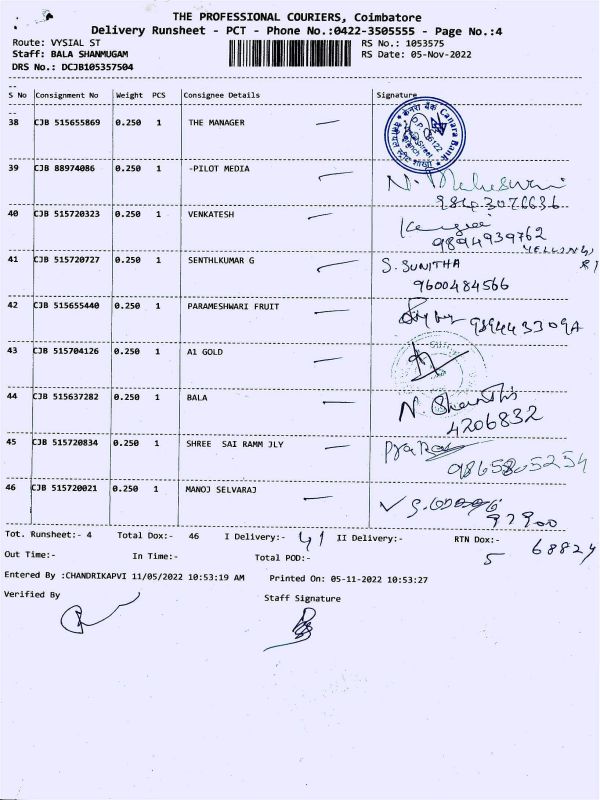 THE PROFESSIONAL COURIERS, Coimbatore
Delivery Runsheet - PCT - Phone No.:0422-3505555 - Page No.:4
Route: VYSIAL ST RS No.: 1053575
Staff: BALA SHANMUGAM RS Date: 05-Nov-2022
DRS No.: DCJB105357504
S No Consignment No Weight PCS Consignee Details Signature
38 CJB 515655869 0.250 1 THE MANAGER
केनरा बैंक Canara Bank
39 CJB 88974086 0.250 1 -PILOT MEDIA N. Maheswari
9843076636
40 CJB 515720323 0.250 1 VENKATESH
9894939762
41 CJB 515720727 0.250 1 SENTHLKUMAR G S. SUNITHA
9600484566
42 CJB 515655440 0.250 1 PARAMESHWARI FRUIT
43 CJB 515704126 0.250 1 A1 GOLD
44 CJB 515637282 0.250 1 BALA N.
4206832
45 CJB 515720834 0.250 1 SHREE SAI RAMM JLY
9865805254
46 CJB 515720021 0.250 1 MANOJ SELVARAJ
97900
Tot. Runsheet:- 4 Total Dox:- 46 I Delivery:- 41 II Delivery:- RTN Dox:- 5
68824
Out Time:- In Time:- Total POD:-
Entered By :CHANDRIKAPVI 11/05/2022 10:53:19 AM Printed On: 05-11-2022 10:53:27
Verified By Staff Signature